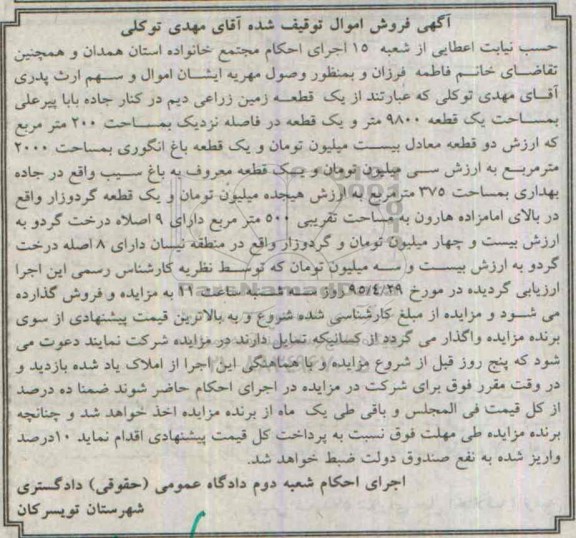 آگهی فروش اموال توقیف شده آقای مهدی توکلی
حسب نیابت اعطایی از شعبه ۱۵ اجرای احکام مجتمع خانواده استان همدان و همچنین
تقاضای خانم فاطمه فرزان و بمنظور وصول مهریه ایشان اموال و سهم ارث پدری
آقای مهدی توکلی که عبارتند از یک قطعه زمین زراعی دیم در کنار جاده بابا پیرعلی
بمساحت یک قطعه ۹۸۰۰ متر و یک قطعه در فاصله نزدیک بمساحت ۲۰۰ متر مربع
که ارزش دو قطعه معادل بیست میلیون تومان و یک قطعه باغ انگوری بمساحت ۲۰۰۰
مترمربع به ارزش سی میلیون تومان و یک قطعه معروف به باغ سیب واقع در جاده
بهداری بمساحت ۳۷۵ مترمربع به ارزش هیجده میلیون تومان و یک قطعه گردوزار واقع
در بالای امامزاده هارون به مساحت تقریبی ۵۰۰ متر مربع دارای ۹ اصلاه درخت گردو به
ارزش بیست و چهار میلیون تومان و گردوزار واقع در منطقه نیسان دارای ۸ اصله درخت
گردو به ارزش بیست و سه میلیون تومان که توسط نظریه کارشناس رسمی این اجرا
ارزیابی گردیده در مورخ ۹۵/۴/۲۹ روز سه شنبه ساعت ۱۱ به مزایده و فروش گذارده
می شود و مزایده از مبلغ کارشناسی شده شروع و به بالاترین قیمت پیشنهادی از سوی
برنده مزایده واگذار می گردد از کسانیکه تمایل دارند در مزایده شرکت نمایند دعوت می
شود که پنج روز قبل از شروع مزایده و با هماهنگی این اجرا از املاک یاد شده بازدید و
در وقت مقرر فوق برای شرکت در مزایده در اجرای احکام حاضر شوند ضمنا ده درصد
از کل قیمت فی المجلس و باقی طی یک ماه از برنده مزایده اخذ خواهد شد و چنانچه
برنده مزایده طی مهلت فوق نسبت به پرداخت کل قیمت پیشنهادی اقدام نماید ۱۰درصد
واریز شده به نفع صندوق دولت ضبط خواهد شد.
اجرای احکام شعبه دوم دادگاه عمومی (حقوقی) دادگستری
شهرستان تویسرکان